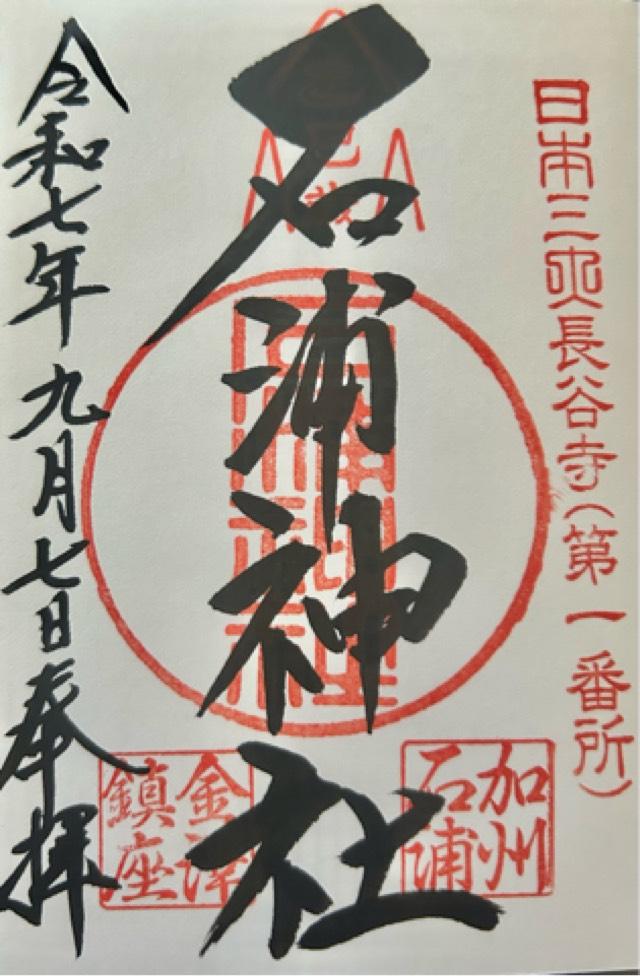 日本三大長谷寺（第一番所）
石浦神社
加州
石浦
金澤
鎮座
令和七年九月七日奉拝